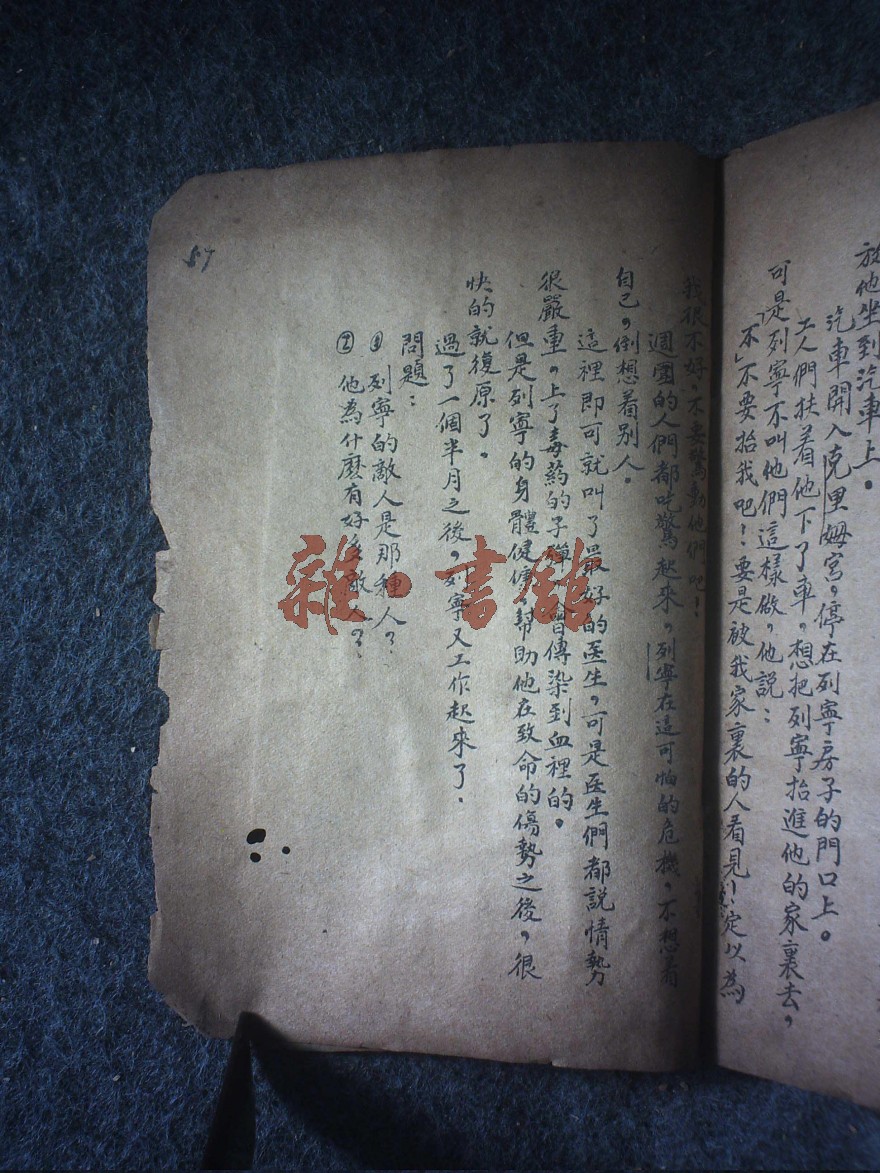 放他坐到汽車上。
汽車開入克里姆宮,停在列寧房子的門口上。
工人們扶着他下了車,想把列寧抬進他的家裏去,
可是列寧不叫他們這樣做,他說:
「不」不要抬我吧!要是被我家裏的人看見!一定以為
我很不好,不要驚動他們吧!
週圍的人們都吃驚起來,列寧在這可怕的危機,不想着
自己,倒想着別人.
這裡即可就叫了最好的医生,可是医生們都說情勢
很嚴重,上了毒药的子彈,會傳染到血裡的.
但是列寧的身體健康,幫助他在致命的傷勢之後,很
快的就復原了.
過了一個半月之後,列寧又工作起來了.
問題:
① 列寧的敵人是那種人?
② 他為什麽有好多敵人?
57
雜·書館